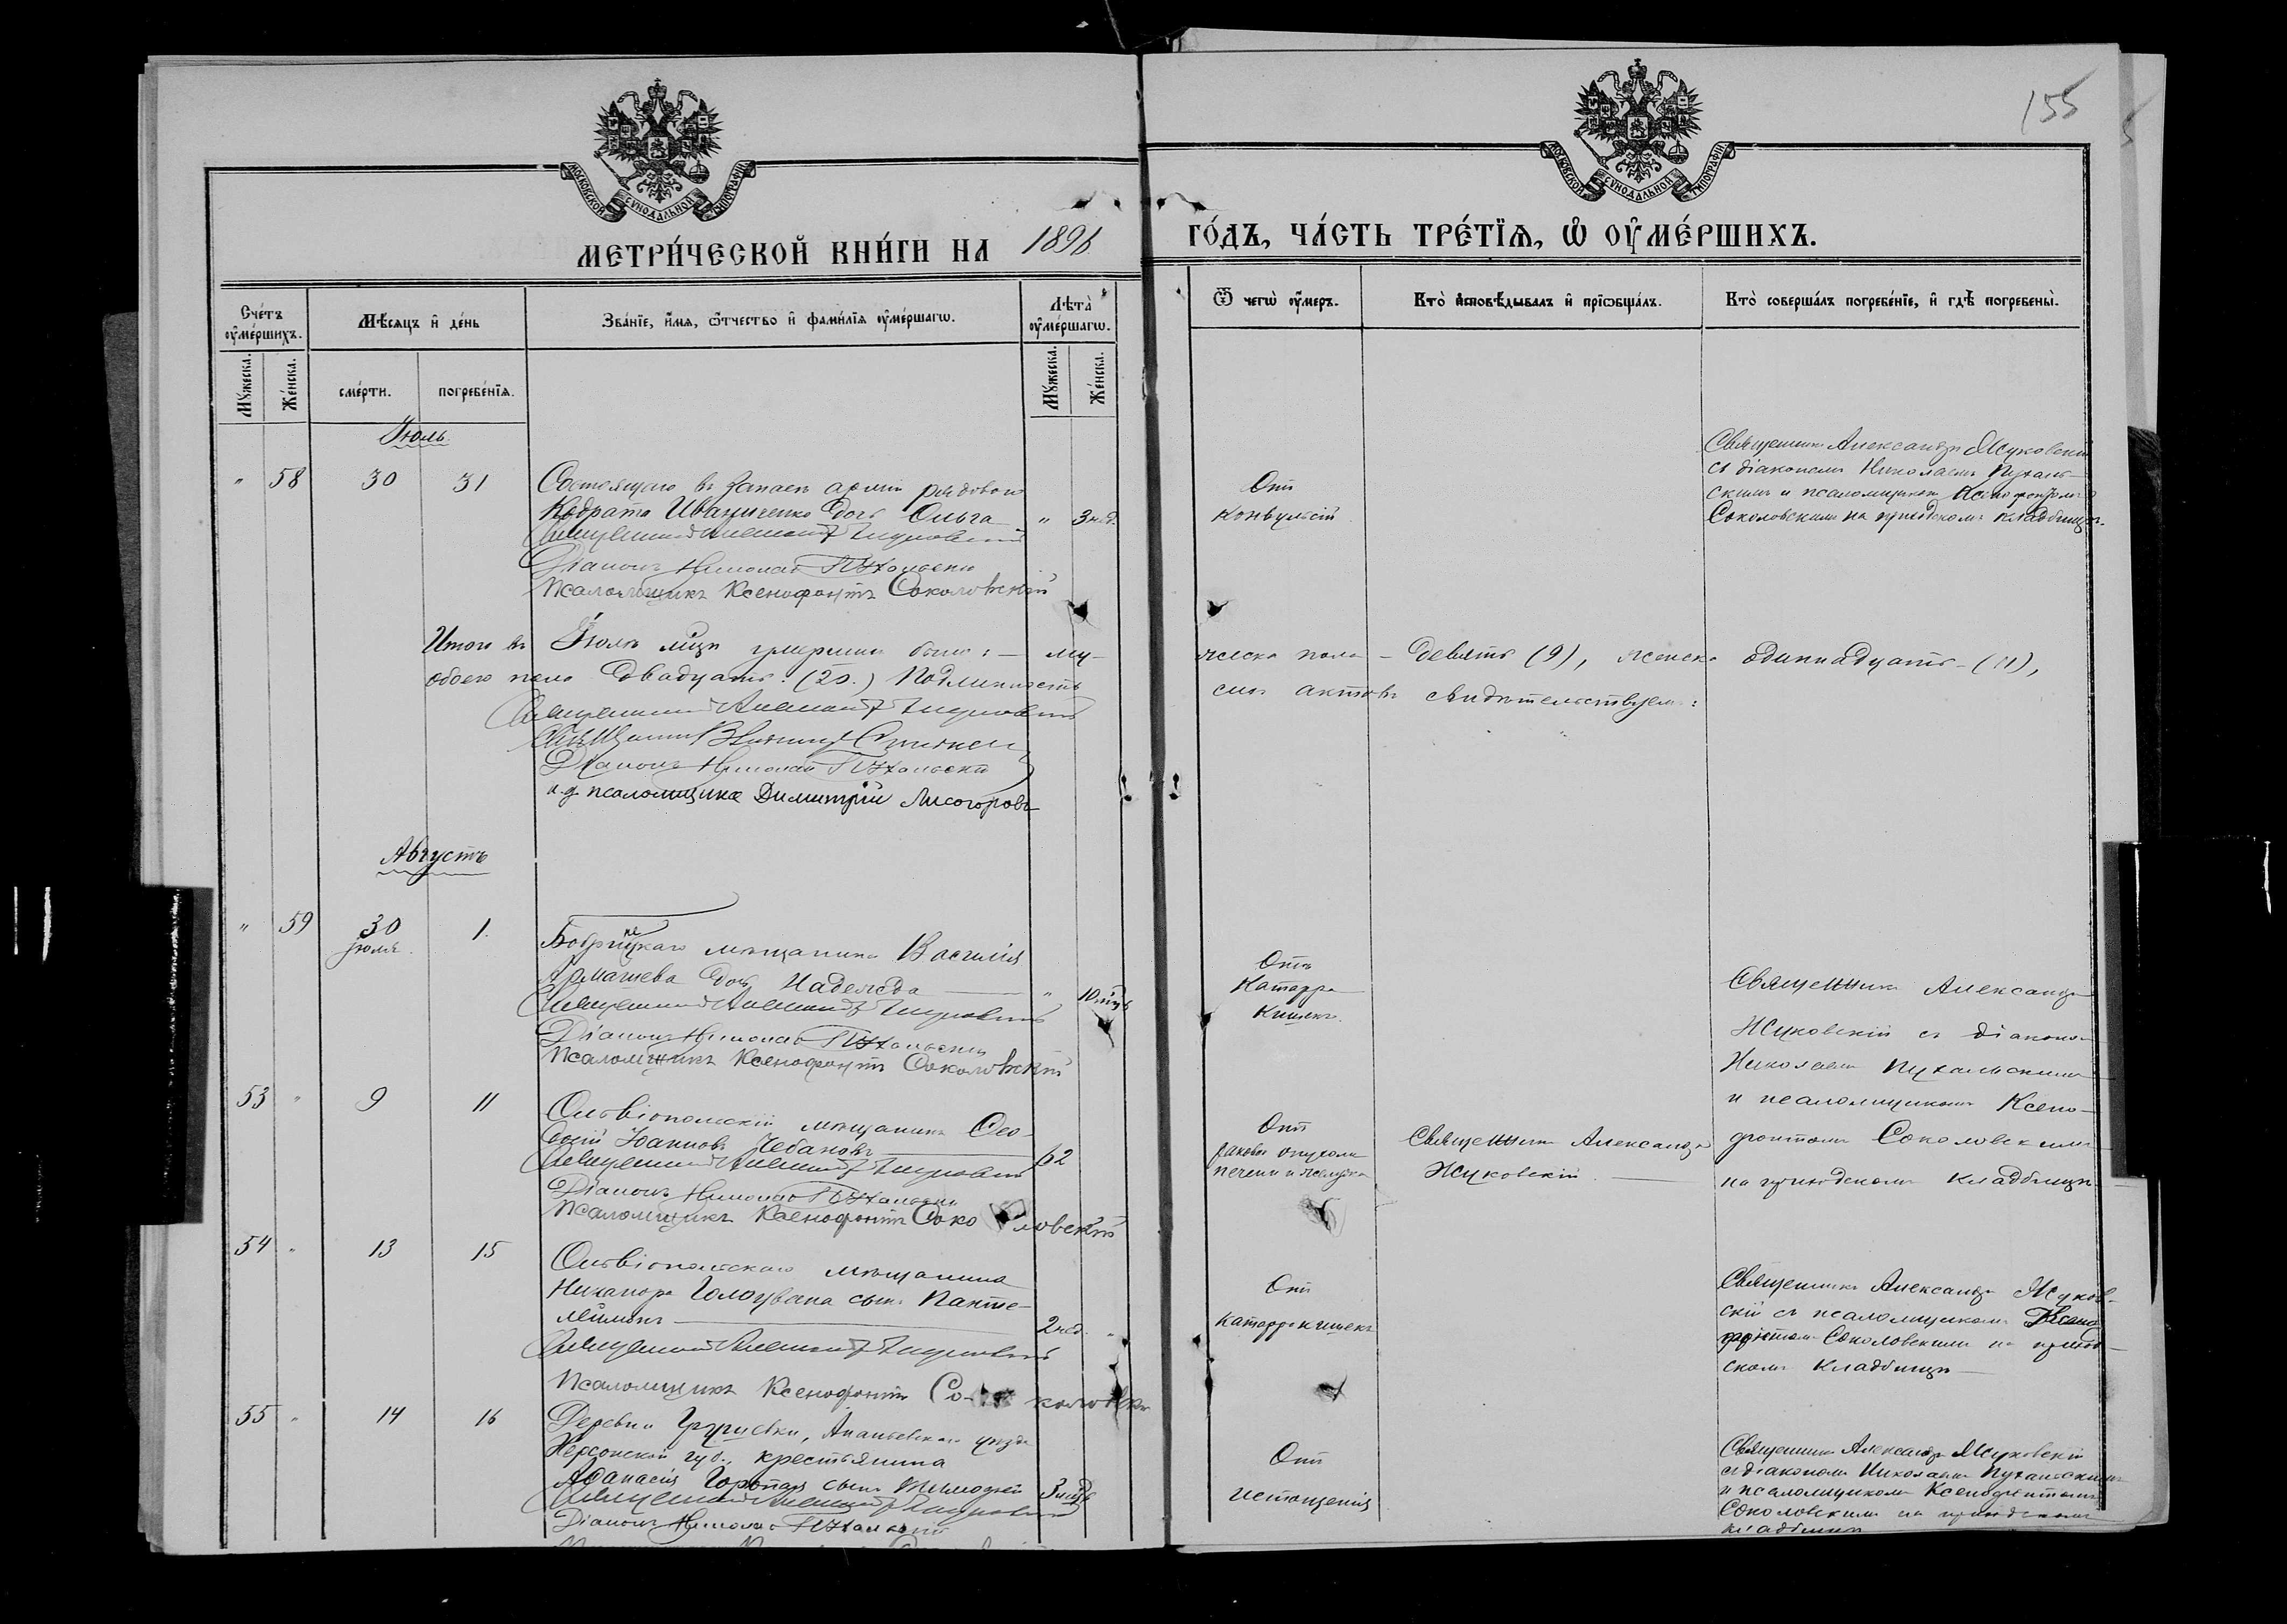 155
МОСКОВСКОЙ СѴНОДАЛЬНОЙ ТИПОГРАФІИ
МОСКОВСКОЙ СѴНОДАЛЬНОЙ ТИПОГРАФІИ
МЕТРИ́ЧЕСКОЙ КНИ́ГИ НА 1896
ГО́ДЪ, ЧА́СТЬ ТРЕ́ТЇѦ, Ѡ҆ ОУ҆МЕ́РШИХЪ.
Сче́тъ оу҆ме́ршихъ.
Мꙋжеска.
Же́нска.
Мѣ́сѧцъ и҆ де́нь
сме́рти.
погребе́нїѧ.
Зва́нїе, и҆́мѧ, ѻ҆́тчество и҆ фами́лїѧ оу҆ме́ршагѡ.
Лѣ́та оу҆ме́ршагѡ.
Мꙋжеска.
Же́нска.
Ѿ чегѡ̀ оу҆́меръ.
Кто̀ и҆сповѣ́дывалъ и҆ прїѡбща́лъ.
Кто̀ соверша́лъ погребе́нїе, и҆ гдѣ̀ погребены̀.
Іюль
" 58 30 31
Состоящаго въ запасѣ арміи рядового
Кодрата Иваниченко дочь Ольга " 3 нед.
Священникъ Александръ Жуковскій
Діаконъ Николай Пухальскій
Псаломщикъ Ксенофонтъ Соколовскій
Отъ
конвульсій
Священникъ Александръ Жуковскій
съ діакономъ Николаемъ Пухаль-
скимъ и псаломщикомъ Ксенофонтомъ
Соколовскимъ на приходскомъ кладбищѣ.
Итого въ Іюлѣ мцѣ умершихъ было: — му-
жеска пола — девять (9), женска одиннадцать — (11),
обоего пола двадцать: (20.) Подлинность
сихъ актовъ свидѣтельствуемъ:
Священникъ Александръ Жуковскій
Священникъ
Діаконъ Николай Пухальскій
и. д. псаломщика Димитрій Лисогоровъ
Августъ
" 59 30 Іюля. 1.
Бобринецкаго мѣщанина Василія
Армашева дочь Надежда — " 10 мцъ
Священникъ Александръ Жуковскій
Діаконъ Николай Пухальскій
Псаломщикъ Ксенофонтъ Соколовскій
Отъ
Катарра
кишекъ.
Священникъ Александръ
Жуковскій съ діакономъ
Николаемъ Пухальскимъ
и псаломщикомъ Ксено-
фонтомъ Соколовскимъ
на приходскомъ кладбищѣ
53 " 9 11
Ольвіопольскій мѣщанинъ Ѳео-
досій Іоанновъ Чебановъ — 62
Священникъ Александръ Жуковскій
Діаконъ Николай Пухальскій
Псаломщикъ Ксенофонтъ Соколовскій
Отъ
раковой опухоли
печени и желудка
Священникъ Александръ
Жуковскій —
54 " 13 15
Ольвіопольскаго мѣщанина
Никанора Гологувана сынъ Панте-
леймонъ — 2 нед. "
Священникъ Александръ Жуковскій
Псаломщикъ Ксенофонтъ Соколовскій
Отъ
катарра кишекъ
Священникъ Александръ Жуков-
скій съ псаломщикомъ Ксено-
фонтомъ Соколовскимъ на приход-
скомъ кладбищѣ —
55 " 14 16
Деревни Ананьевскаго уѣзда
Херсонской губ., крестьянина
Аѳанасія сынъ Тимоѳей 3 мцъ
Священникъ Александръ Жуковскій
Діаконъ Николай Пухальскій
Отъ
истощенія
Священникъ Александръ Жуковскій
съ діакономъ Николаемъ Пухальскимъ
и псаломщикомъ Ксенофонтомъ
Соколовскимъ на приходскомъ
кладбищѣ